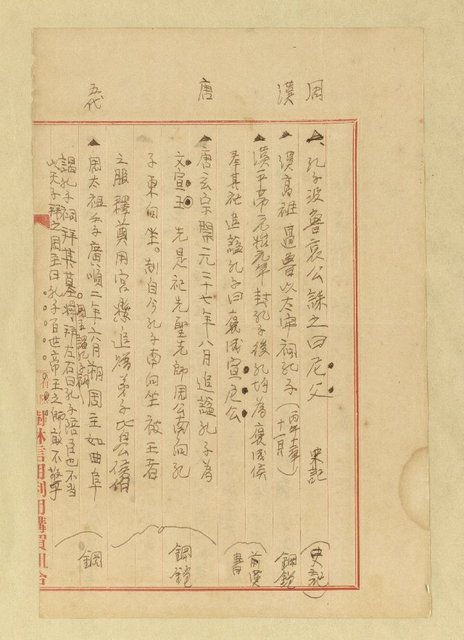 周
漢
唐
五代
孔子没魯哀公誄之曰尼父 史記
(史記)
漢高祖過魯以太牢祠孔子(丙午十二年十一月)
綱鑑
漢平帝元始元年封孔子後孔均為褒成侯
奉其祀追謚孔子曰褒成宣尼公
前漢書
唐玄宗開元二十七年八月追謚孔子為
文宣王 先是祀先聖先師周公南向孔
子東向坐。制自今孔子南向坐被王者
之服釋奠用宮懸追贈弟子皆為公侯伯
綱鑑
周太祖 廣順二年六月朔周主如曲阜
謁孔子祠拜其墓將拜左右曰孔子陪臣也不当
以天子拜之周主曰孔子百世帝王之師敢不敬乎
綱
樹林信用利用購買組合